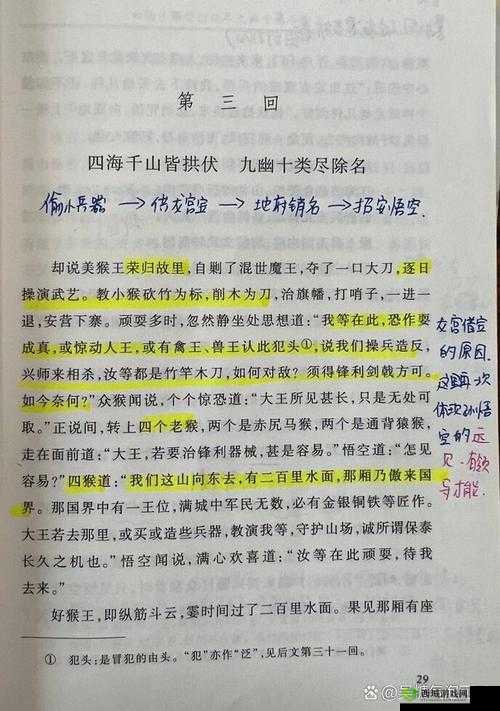 第三回
四海千山皆拱伏 九幽十类尽除名
偷小兵器→借龙宫宝→地府销名→招安悟空.
却说美猴王荣归故里,自剿了混世魔王,夺了一口大刀,逐日
操演武艺。教小猴砍竹为标,削木为刀,治旗幡,打哨子,一进一
退,安营下寨。顽耍多时,忽然静坐处思想道:“我等在此,恐作耍
成真,或惊动人王,或有禽王、兽王认此犯头①,说我们操兵造反,
兴师来相杀,汝等都是竹竿木刀,如何对敌?须得锋利剑戟方可。
如今奈何?”众猴闻说,个个惊恐道:“大王所见甚长,只是无处可
取。”正说间,转上四个老猴,两个是赤尻马猴,两个是通背猿猴,
走在面前道:“大王,若要治锋利器械,甚是容易。”悟空道:“怎见
容易?”四猴道:“我们这山向东去,有二百里水面,那厢乃傲来国
界。那国界中有一王位,满城中军民无数,必有金银铜铁等匠作。
大王若去那里,或买或造些兵器,教演我等,守护山场,诚所谓保泰
长久之机也。”悟空闻说,满心欢喜道:“汝等在此顽耍,待我
去来。”
好猴王,即纵筋斗云,霎时间过了二百里水面。果见那厢有座
龙宫借宝
的原因.
这里再次
体现孙悟
空的远
见、有领
导才能.
① 犯头:是冒犯的由头。“犯”亦作“泛”,见后文第三十一回。
29
西域游戏网